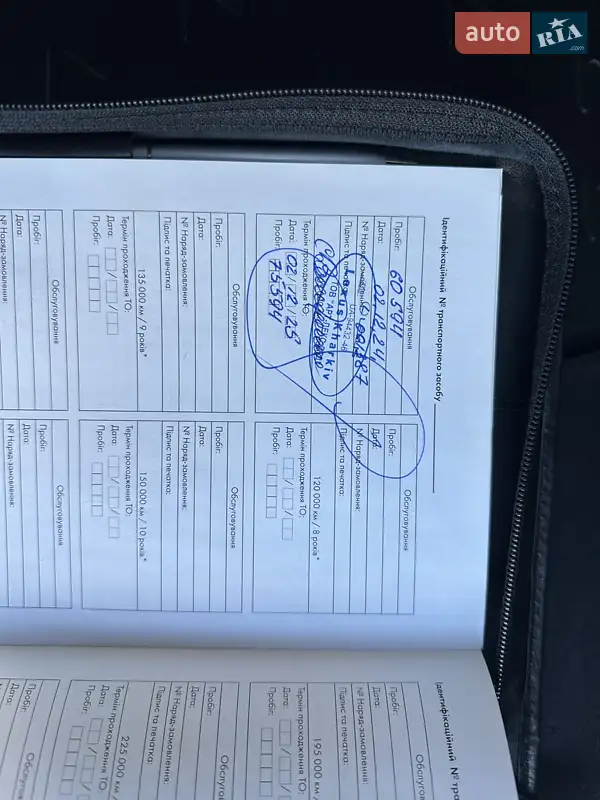 auto RIA.com
Ідентифікаційний № транспортного засобу
Обслуговування
Пробіг: 60 504
Дата: 02.12.24
№ Наряд-замовлення:
Підпис та печатка:
Kharkiv
Термін проходження ТО:
Дата: 02/12/25
Пробіг: 75594
Обслуговування
Пробіг:
Дата:
№ Наряд-замовлення:
Підпис та печатка:
120 000 км / 8 років*
Термін проходження ТО:
Дата:
Пробіг:
Обслуговування
Пробіг:
Дата:
№ Наряд-замовлення:
Підпис та печатка:
135 000 км / 9 років*
Термін проходження ТО:
Дата:
Пробіг:
Обслуговування
Пробіг:
Дата:
№ Наряд-замовлення:
Підпис та печатка:
150 000 км / 10 років*
Термін проходження ТО:
Дата:
Пробіг:
Обслуговування
Пробіг:
Дата:
№ Наряд-замовлення:
Обслуговування
Пробіг:
Дата:
№ Наряд-замовлення:
Ідентифікаційний № тра
Обслугов
Пробіг:
Дата:
№ Наряд-замовлення:
Підпис та печатка:
195 000 км /
Термін проходження ТО:
Дата:
Пробіг:
Обслугов
Пробіг:
Дата:
№ Наряд-замовлення:
Підпис та печатка:
225 000 км
Термін проходження ТО:
Дата:
Пробіг:
Обслуго
Пробіг:
Дата: